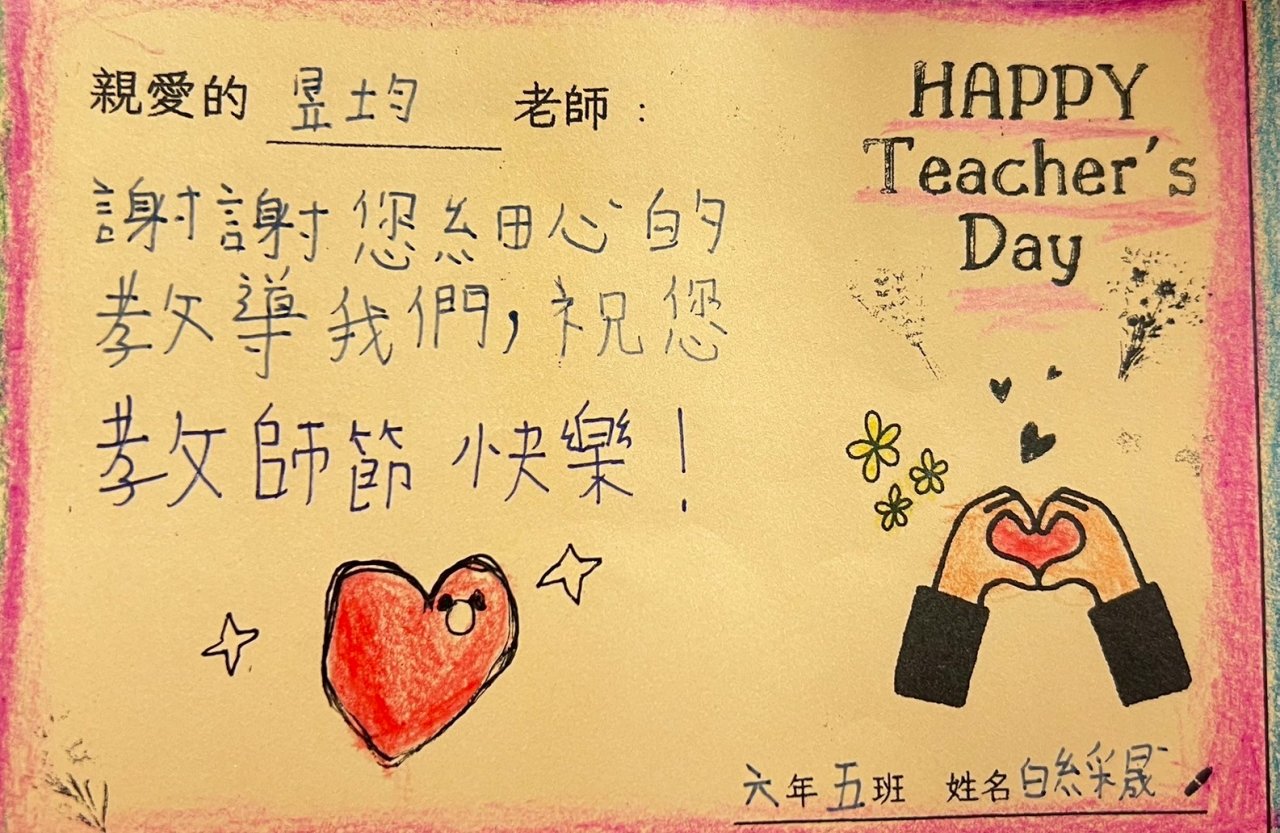 親愛的 昱均 老師：
謝謝您細心的
教導我們，祝您
教師節快樂！
HAPPY
Teacher's
Day
六年五班 姓名白綵晟